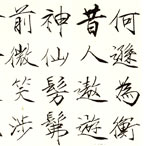 何遜為衡
昔人遨遊
神仙髣髴
前微笑涉